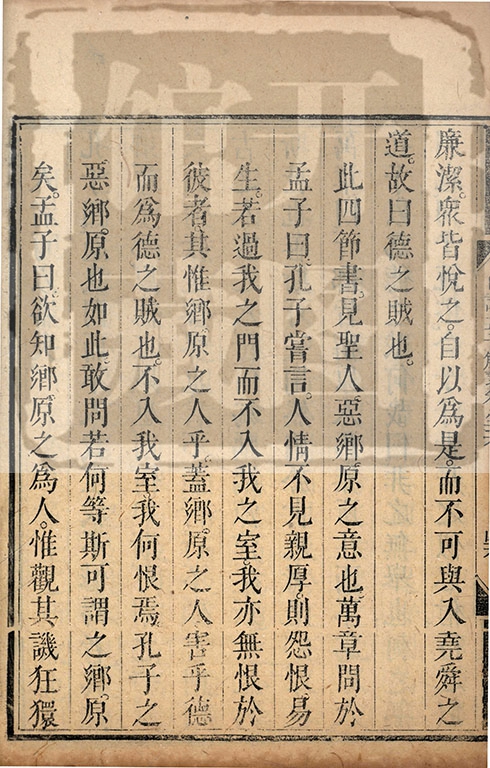 廉潔。衆皆悅之。自以爲是。而不可與入堯舜之
道。故曰德之賊也。
此四節書。見聖人惡鄉原之意也。萬章問於
孟子曰。孔子嘗言。人情不見親厚。則怨恨易
生。若過我之門而不入我之室。我亦無恨於
彼者。其惟鄉原之人乎。蓋鄉原之人害乎德
而爲德之賊也。不入我室。我何恨焉。孔子之
惡鄉原也如此。敢問若何等斯可謂之鄉原
矣。孟子曰。欲知鄉原之爲人。惟觀其譏狂獧